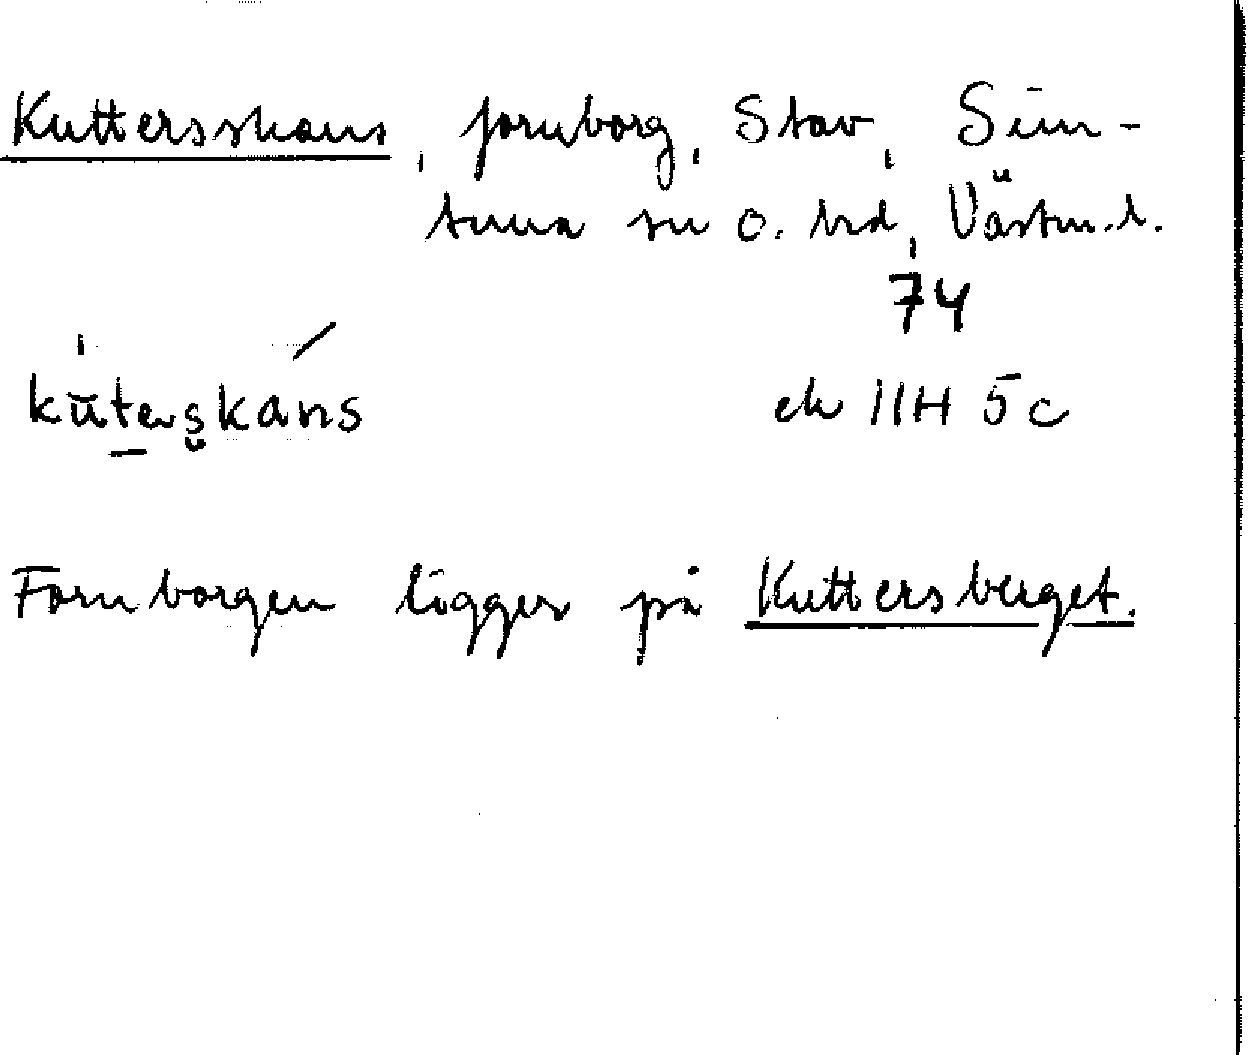 Kuttersskans, fornborg, Stav, Sim-
tuna sn o. hd, Västm. l.
74
kuterskans ek 11H 5c
Fornborgen ligger på Kuttersberget.